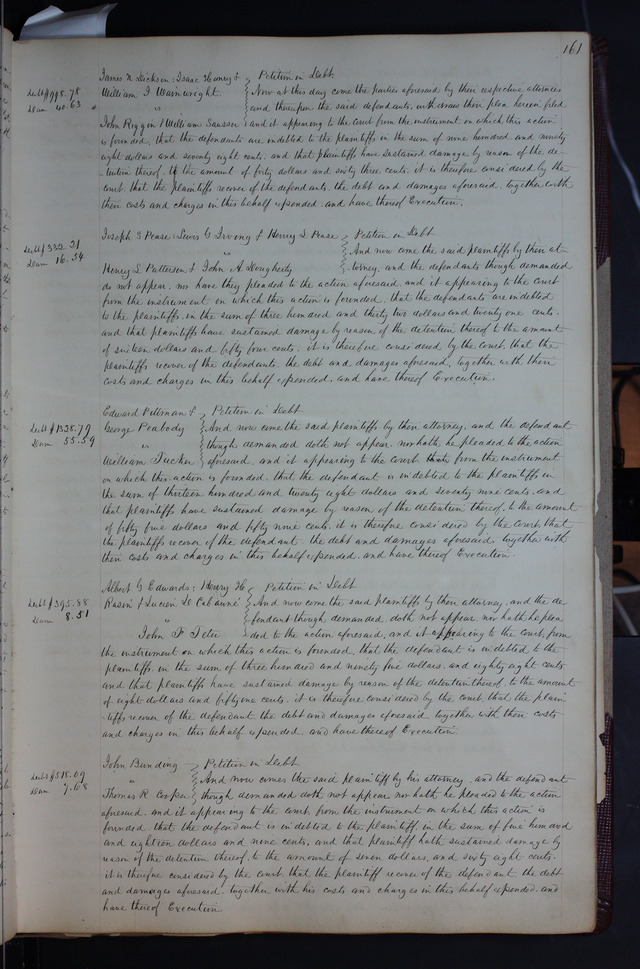 161
James N Dickson: Isaac Henry & } Petition in Debt
Debt $998.78 William I Wainwright. } Now at this day come the parties aforesaid by their respective attornies
Dam 40.63 vs } and thereupon the said defendants, withdraws their plea herein filed
John Riggin & William Sausser } and it appearing to the Court from the instrument on which this action
is founded, that the defendants are indebted to the plaintiffs in the sum of nine hundred and ninety
eight dollars and seventy eight cents. and that plaintiffs have sustained damage by reason of the de-
tention thereof. to the amount of forty dollars and sixty three cents. it is therefore considered by the
court, that the plaintiffs recover of the defendants. the debt and damages aforesaid, together with
their costs and charges in this behalf expended. and have thereof Execution.
Joseph S Pease: Lewis G Irving & Henry L Pease } Petition in Debt
Debt $332.21 vs } And now come the said plaintiffs by their at-
Dam 16.54 Henry L Patterson & John A Dougherty } torney, and the defendants though demanded
do not appear, nor have they pleaded to the action aforesaid, and it appearing to the court
from the instrument on which this action is founded, that the defendants are indebted
to the plaintiffs, in the sum of three hundred and thirty two dollars and twenty one cents.
and that plaintiffs have sustained damage by reason, of the detention thereof to the amount
of sixteen dollars and fifty four cents. it is therefore considered by the court, that the
plaintiffs recover of the defendants. the debt and damages aforesaid, together with their
costs and charges in this behalf expended. and have thereof Execution.
Edward Pittman & } Petition in Debt
Debt $1328.79 George Peabody } And now come the said plaintiffs by their attorney, and the defendant
Dam 55.59 vs } though demanded doth not appear nor hath he pleaded to the action
William Tucker } aforesaid, and it appearing to the court from the instrument
on which this action is founded, that the defendant is indebted to the plaintiffs in
the sum of thirteen hundred and twenty eight dollars and seventy nine cents. and
that plaintiffs have sustained damage by reason of the detention thereof, to the amount
of fifty five dollars and fifty nine cents. it is therefore considered by the court, that
the plaintiffs recover of the defendant the debt and damages aforesaid, together with
their costs and charges in this behalf expended. and have thereof Execution.
Albert G Edwards: Henry H. } Petition in Debt
Debt $395.88 Rasin & Lucien D Cabanné } And now come the said plaintiffs by their attorney, and the de-
Dam 8.51 vs } fendant though demanded doth not appear, nor hath he plea-
John F } ded to the action aforesaid, and it appearing to the Court, from
the instrument on which this action is founded, that the defendant is indebted to the
plaintiffs. in the sum of three hundred and ninety five dollars. and eighty eight cents
and that plaintiffs have sustained damage by reason of the detention thereof, to the amount
of eight dollars and fifty one cents. it is therefore considered by the court that the plain-
tiffs recover of the defendant the debt and damages aforesaid together with their costs
and charges in this behalf expended. and have thereof Execution.
John Bunding } Petition in Debt
Debt $518.09 vs } And now comes the said plaintiff by his attorney, and the defendant
Dam 7.68 Thomas R. Cooper } though demanded doth not appear, nor hath he pleaded to the action
aforesaid. and it appearing to the court, from the instrument on which this action is
founded, that the defendant is indebted to the plaintiff. in the sum of five hundred
and eighteen dollars and nine cents, and that plaintiff hath sustained damage by
reason of the detention thereof, to the amount of seven dollars, and sixty eight cents.
it is therefore considered by the court. that the plaintiff recover of the defendant the debt
and damages aforesaid. together with his costs and charges in this behalf expended. and
have thereof Execution